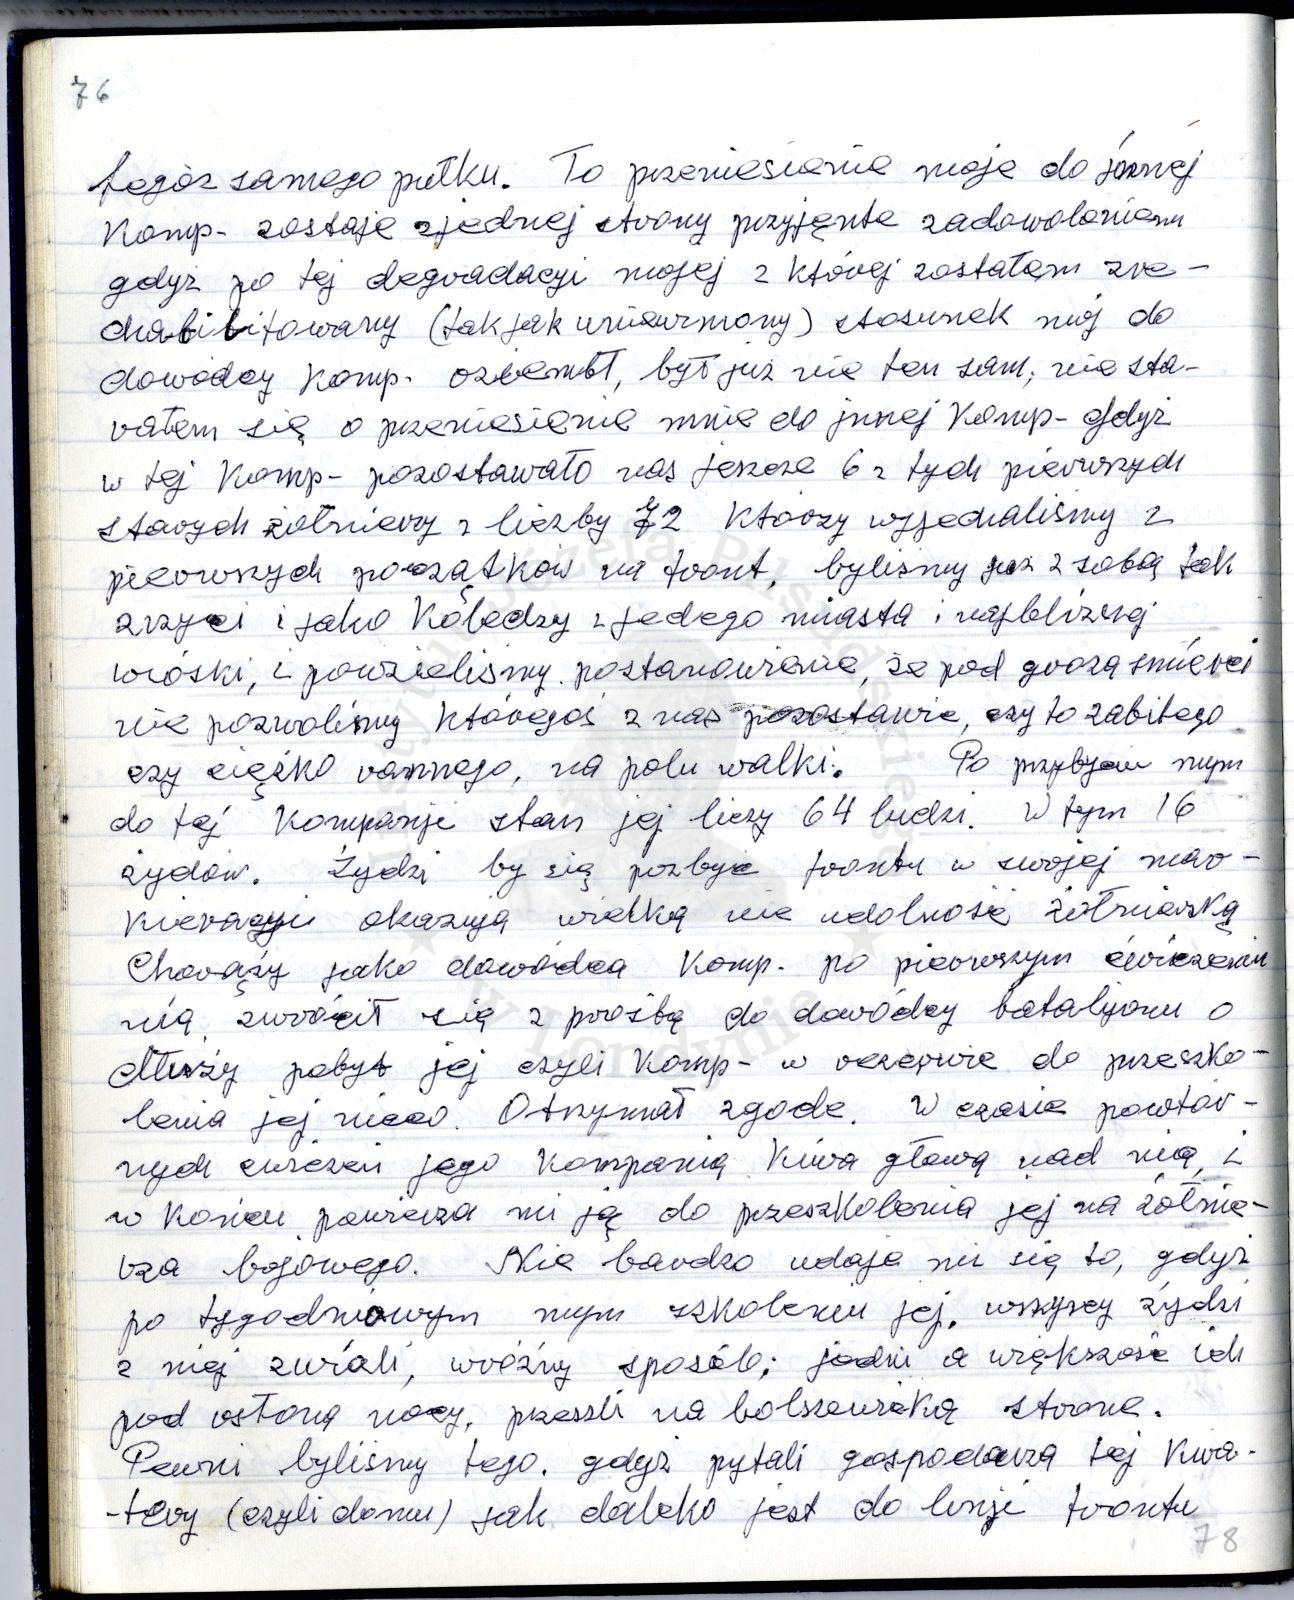 76
tegoż samego pułku. To przeniesienie moje do jnnej
Komp- zostaje zjednej strony przyjęnte zadowoleniem
gdyż po tej degradacyi mojej z której zostałem zre-
chabilitowany (tak jak uniewrniony) stosunek mój do
dowódcy Komp. oziembł, był już nie ten sam; nie sta-
rałem się o przeniesienie mnie do jnnej Komp- gdyż
w tej Komp- pozostawało nas jeszcze 6 z tych pierwszych
starych żołnierzy z liczby 72 Którzy wyjechaliśmy z
pierwszych początków na front, byliśmy już z sobą tak
zrzyci i jako Kolędzy z jedego miasta i najbliższej
wioski, i powzieliśmy postanowienie, że pod grozą śmierci
nie pozwolimy Któregoś z nas pozostawić, czy to zabitego
czy ciężko rannego, na polu walki. Po przybyciu mym
do tej Kompanje stan jej liczy 64 ludzi. W tym 16
żydów. Żydzi by się pozbyć frontu w swojej mar-
Kieracyji okazują wielką nie udolność żołnierską
Chorąży jako dowódca Komp. po pierwszym ćwiczeniu
nią, zwrócił się z prośbą do dowódcy batalijonu o
dłuży pobyt jej czyli Komp- w rezerwie do przeszko-
lenia jej nieco. Otrzymał zgode. W czasie powtór-
nych ćwiczeń jego Kompanią Kiwa głową nad nią, i
w Końcu powierza mi ją do przeszkolenia jej na żołnie-
rza bojowego. Nie bardzo udaje mi się to, gdyż
po tygodniowym mym szkoleniu jej, wszyscy żydzi
z niej zwiali, wróżny sposób; jedni a większość ich
pod osłoną nocy, przeszli na bolszewicką strone.
Pewni byliśmy tego. gdyż pytali gospodarza tej Kwa-
-tery (czyli domu) jak daleko jest do linji frontu
78
Instytut Józefa Piłsudskiego
w Londynie